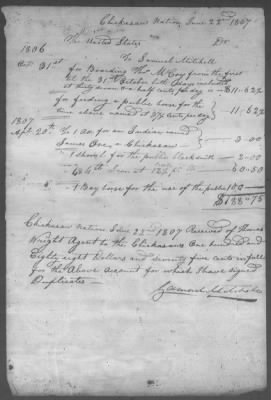 Chickasaw Nation June 22d 1807
The United States Dr
1806 To Samuel Mitchell
Octr 31st for Boarding Thos McCoy from the first
to the 31st October both days included
at thirty seven & a half cents pr day is $11.62½
for feeding a public horse for the
same time at 37½ cents pr day 11.62½
1807
Apr. 20th To 1 for an Indian named
James a Chickasaw 3.00
1 for the public blacksmith 2.00
Iron at 60.50
1 Bay horse for the use of the public 100
$188.75
Chickasaw Nation June 22d 1807 Received of Thomas
Wright Agent to the Chickasaws One hundred and
Eighty eight Dollars and seventy five cents in full
for the Above Account for which I have signed
Duplicates
Samuel Mitchell